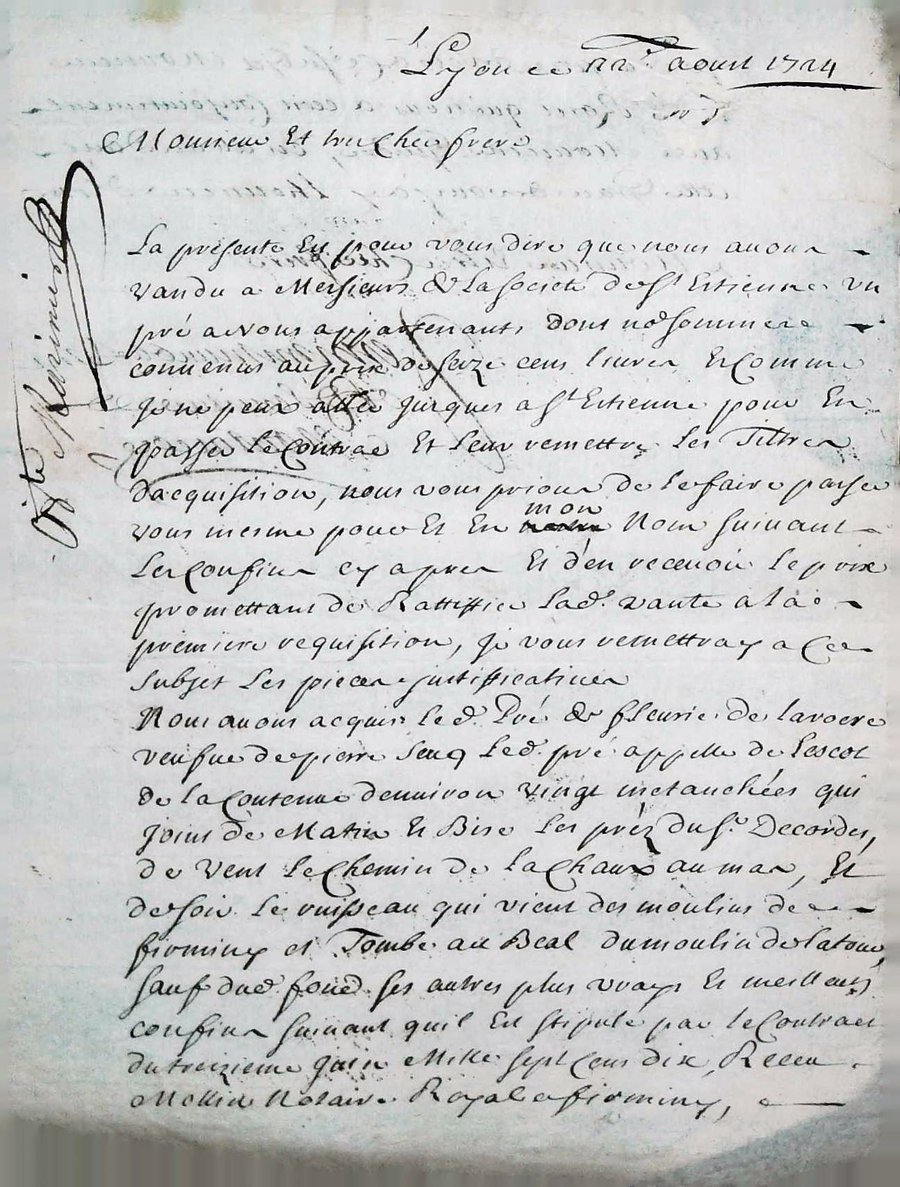 Lyon ce 22e. aoust 1724
Monsieur Et tres Cher frere
La présente Est pour vous dire que nous auons
vandu a Messieurs de La Societé de St. Estienne vn
pré a Nous appartenants dont nous sommes
conuenus au prix de Seize cens liures Et Comme
Je ne peux aller Jusques a St. Estienne pour En
passer le Contrac Et Leur remettre Les Tiltres
dacquisition, nous vous prions de le faire passer
vous mesme pour Et En mon Nom Suiuant
Les Confins cy apres Et d'en receuoir le prix
promettant de Rattiffier Lade. vante a la
premiere requisition, Je vous remettray a Ces
Subjet Les pieces justifficatiues
Nous auons acquis led. Pré de fleurie de Larocre
veufue de pierre led. pré appellé de Lescot
de la Contenue denuiron vingt metanchées qui
Joint de Matin Et Bise Les préz du Sr. Decordes,
de Vent Le Chemin de La Chaux au mas, Et
de Soir Le ruisseau qui vient des moulins de
firminy et Tombe au Beal du moulin de la tour,
Sauf dud. fond ses autres plus vrays Et meilleurs
confins Suiuant quil Est Stipulé par le Contract
du treizieme Juin Mille Sept Cens dix, Receu
Notaire Royal a firminy,